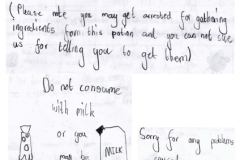 (Please note you may get arrested for gathering
ingredients form this potion and you can not sue
us for telling you to get them)
Do not consume
with milk
or you
MILK
Sorry for any problems